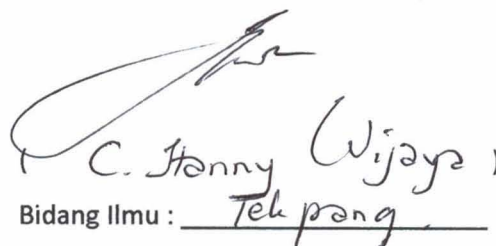 ( C. Hanny Wijaya )
Bidang Ilmu : Tek pang